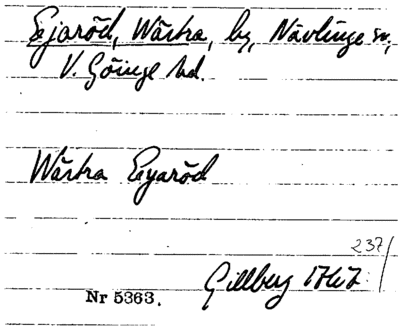 Ejaröd, Wästra, by, Nävlinge sn,
V. Göinge hd.
Wästra Eyaröd
237/
Gillberg 1767.
Nr 5363.